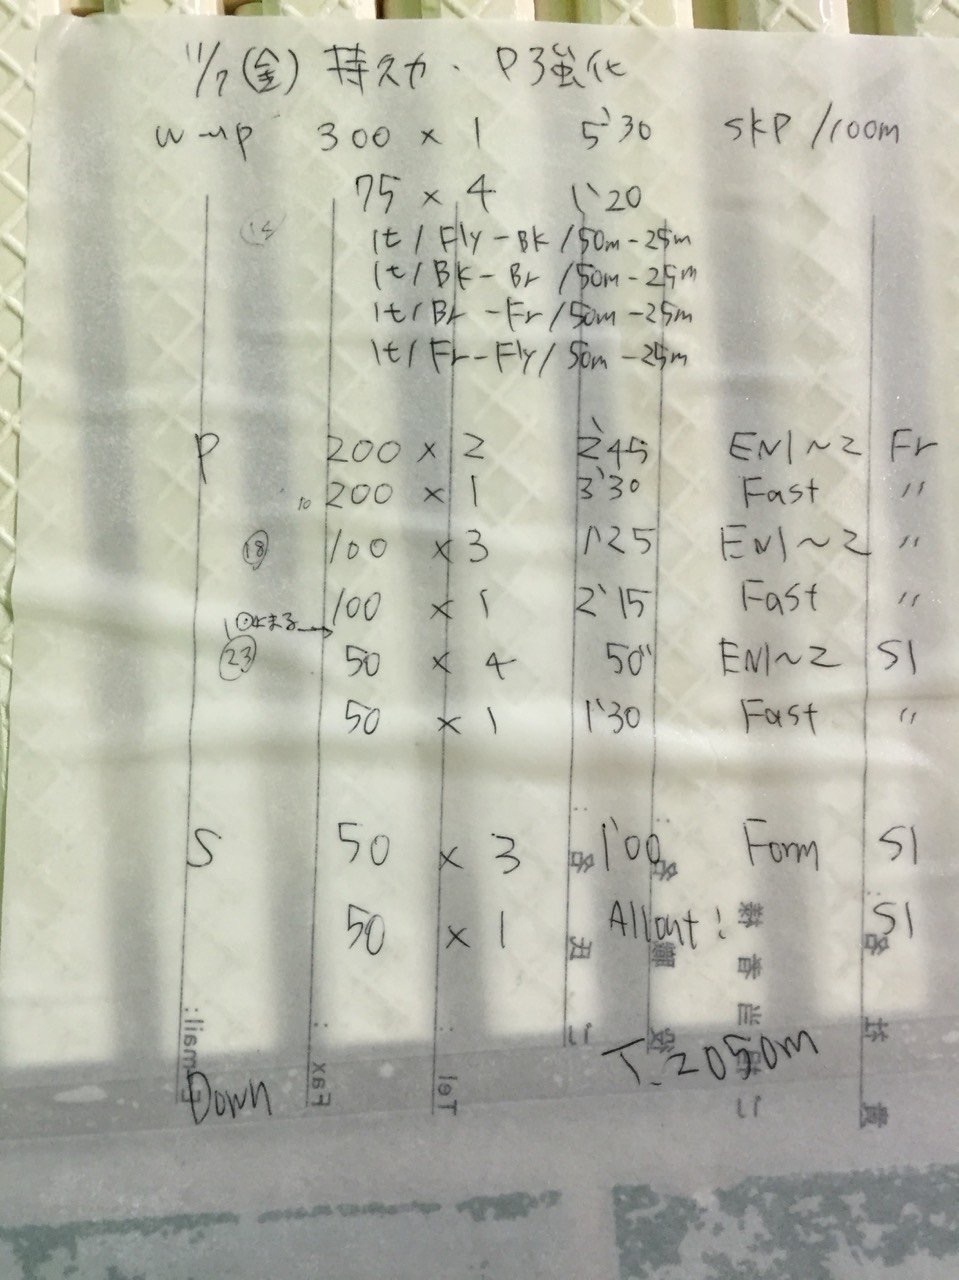 11/7(金) 持久力・P強化
W-up 300 × 1 5'30 SKP /100m
75 × 4 1'20
1t / Fly - Bk / 50m - 25m
1t / Bk - Br / 50m - 25m
1t / Br - Fr / 50m - 25m
1t / Fr - Fly / 50m - 25m
P 200 × 2 2'45 EN1~2 Fr
10 200 × 1 3'30 Fast 〃
⑱ 100 × 3 1'25 EN1~2 〃
100 × 1 2'15 Fast 〃
㉓ 50 × 4 50" EN1~2 S1
50 × 1 1'30 Fast 〃
S 50 × 3 1'00 Form S1
50 × 1 Allout! S1
T. 2050m
Down
E-mail:
Fax :
Tel :